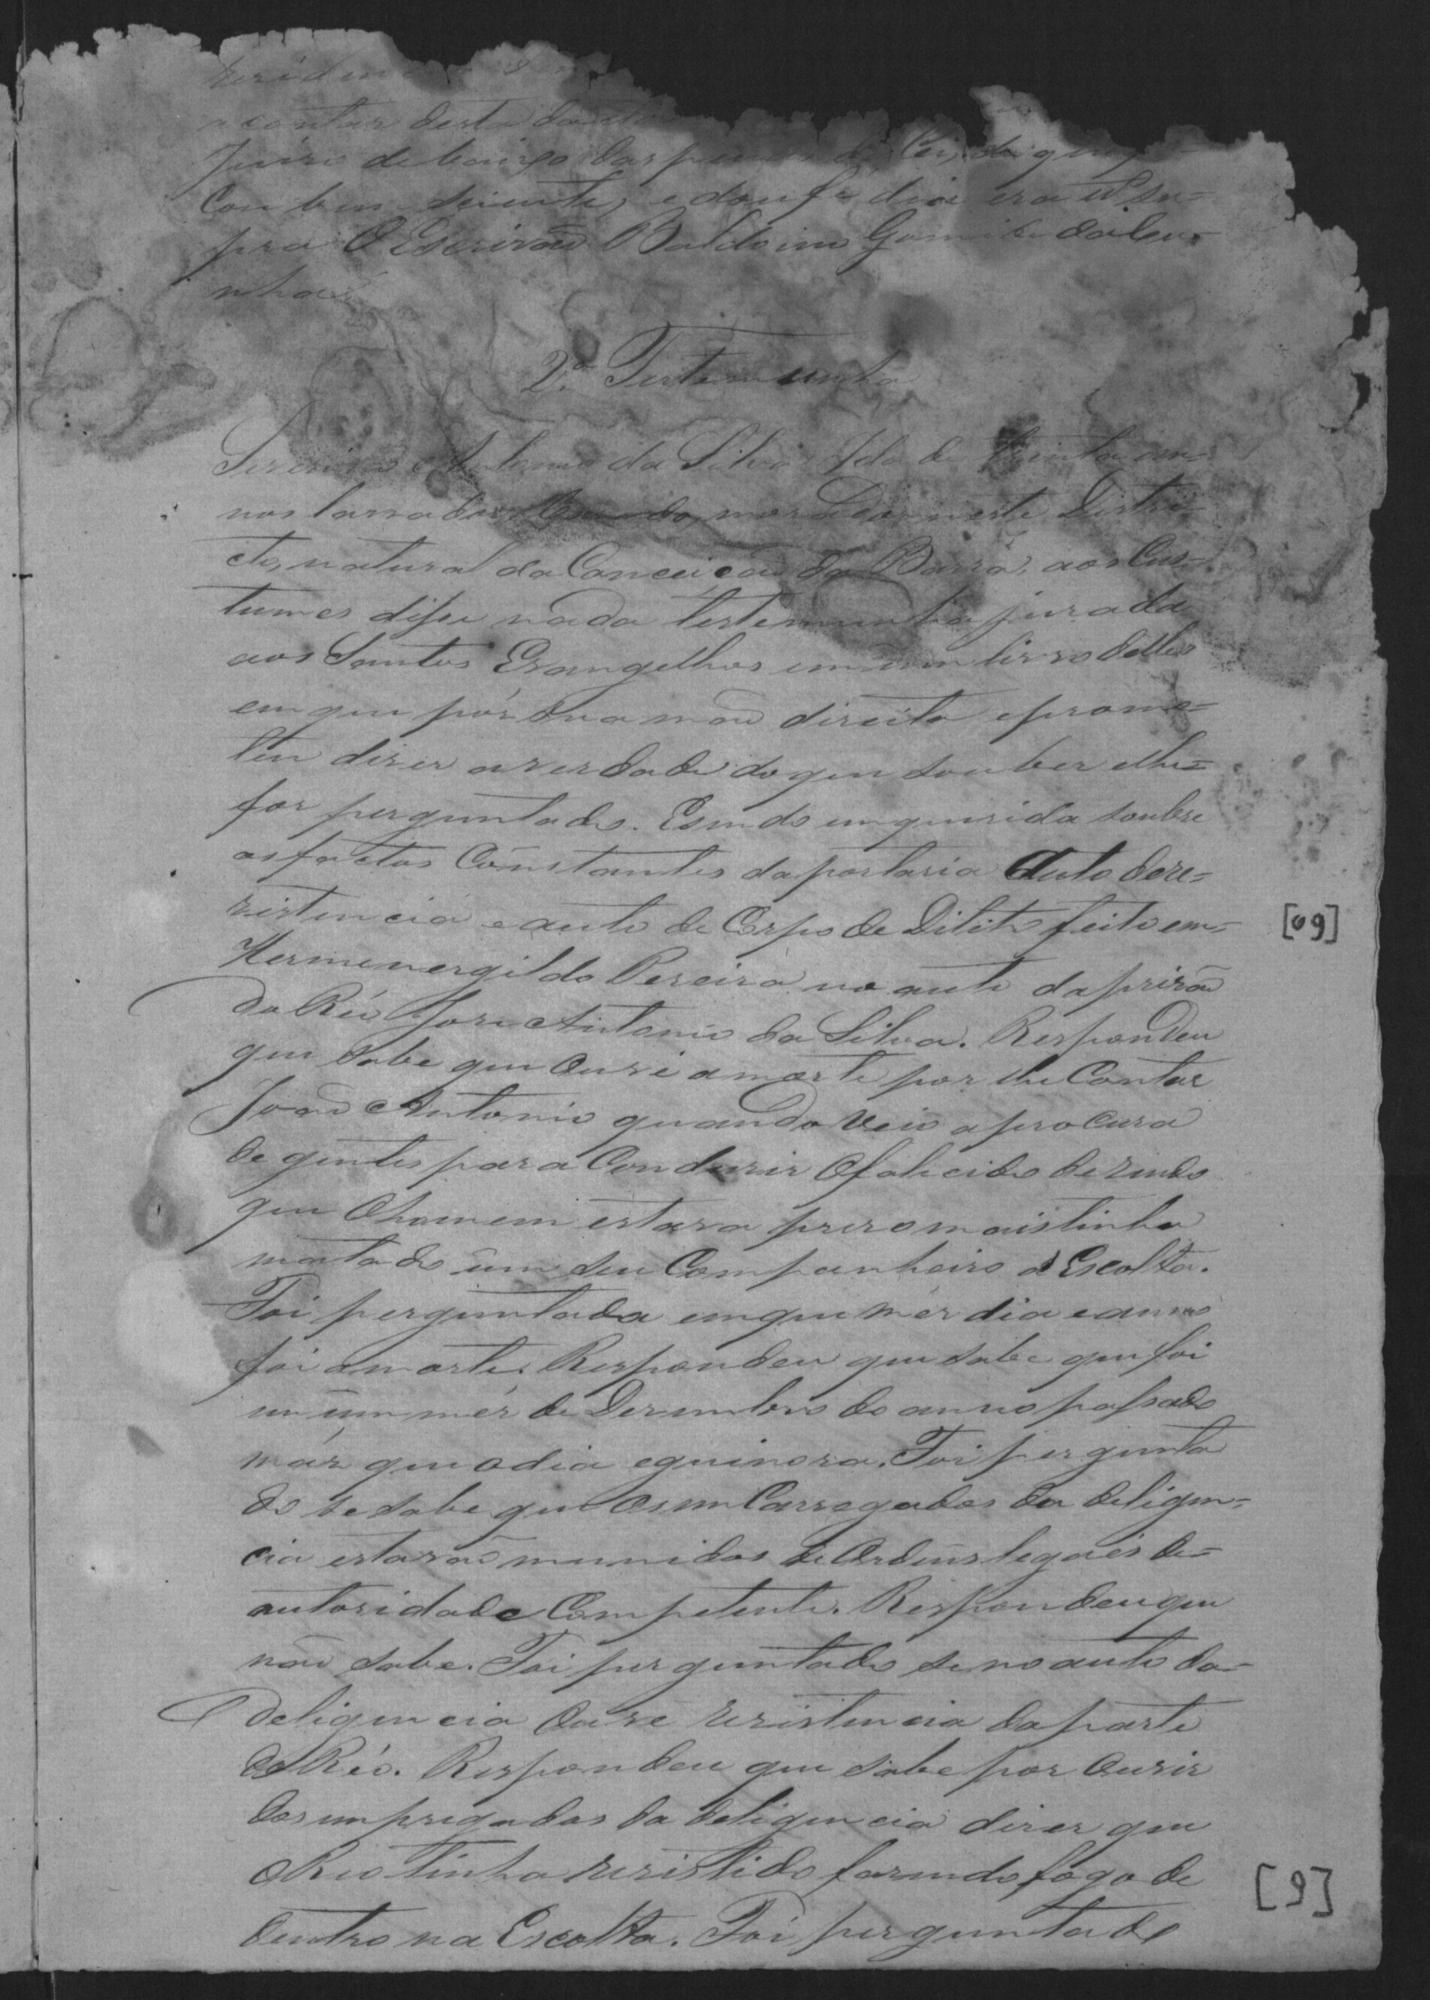 a contar desta data
Juizo debaixo das penas da Lei, do que
con bem sciente, e dou fé dia era ut su-
pra O Escrivão Baldoino Gomes da Cu-
nha
2ª Testemunha
Antonio da Silva Ido de trinta an-
nos lavrador morador neste Distri-
cto, natural da Conceição da Barra, aos Cus-
tumes disse nada testemunha jurada
aos Santos Evangelhos em um livro delles
em que pôr sua mão direita e prome-
teu dizer a verdade do que souber e lhe=
for perguntado. E sendo enquerida soubre
os factos Constantes da portaria Auto de re=
zistencia e auto de Corpo de Dilito feito em=
Hermenergildo Pereira no auto da prizão
do Réo Jose Antonio da Silva. Respondeu
que sabe que ouve a morte por lhe Contar
João Antonio quando veio a procura
de gentes para Conduzir o falicido dizendo
que o homem estava prezo mais tinha
matado um seu Companheiro d'Escolta.
Foi perguntada em que mêz dia e anno
foi a morte. Respondeu que sabe que foi
um mêz de Dezembro do anno passado
máz que o dia eguinora. Foi pergunta
do se sabe que os em Carregados da deligen=
cia estavão munidos de Ordens legaes de=
autoridade Competente. Respondeu que
não sabe. Foi perguntado se no auto da=
deligencia ouve rezistencia da parte
do Réo. Respondeu que sabe por ouvir
dos empregados da deligencia dizer que
o Reo tinha rezistido fazendo fogo de
dentro na Escolta. Foi perguntado
[09]
[9]